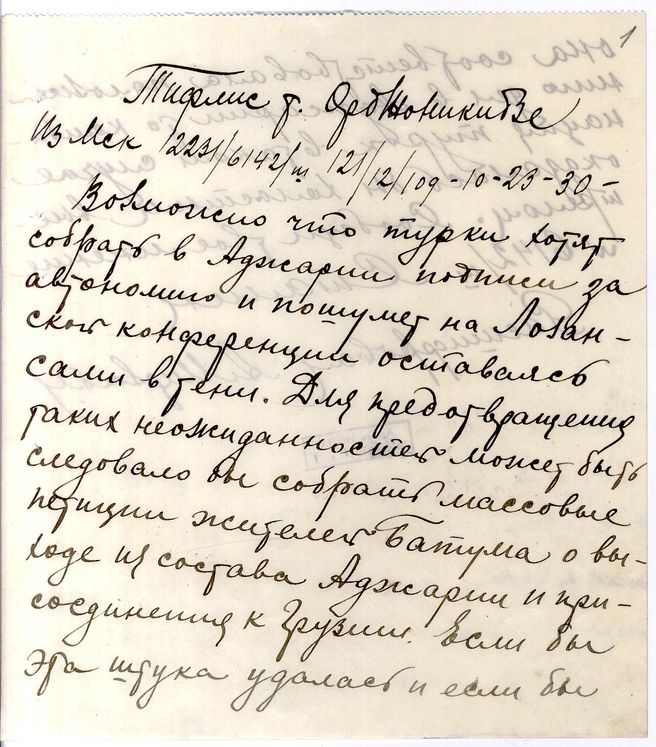 1
Тифлис т. Орджоникидзе
Из Мск 2231/6142/ш 121/12/109-10-23-30-
Возможно что турки хотят
собрать в Аджарии подписи за
автономию и пошумет на Лозан-
ской конференции оставаясь
сами в тени. Для предотвращения
таких неожиданностей может быть
следовало бы собрать массовые
петиции жителей Батума о вы-
ходе из состава Аджарии и при-
соединения к Грузии. Если бы
эта штука удалась и если бы